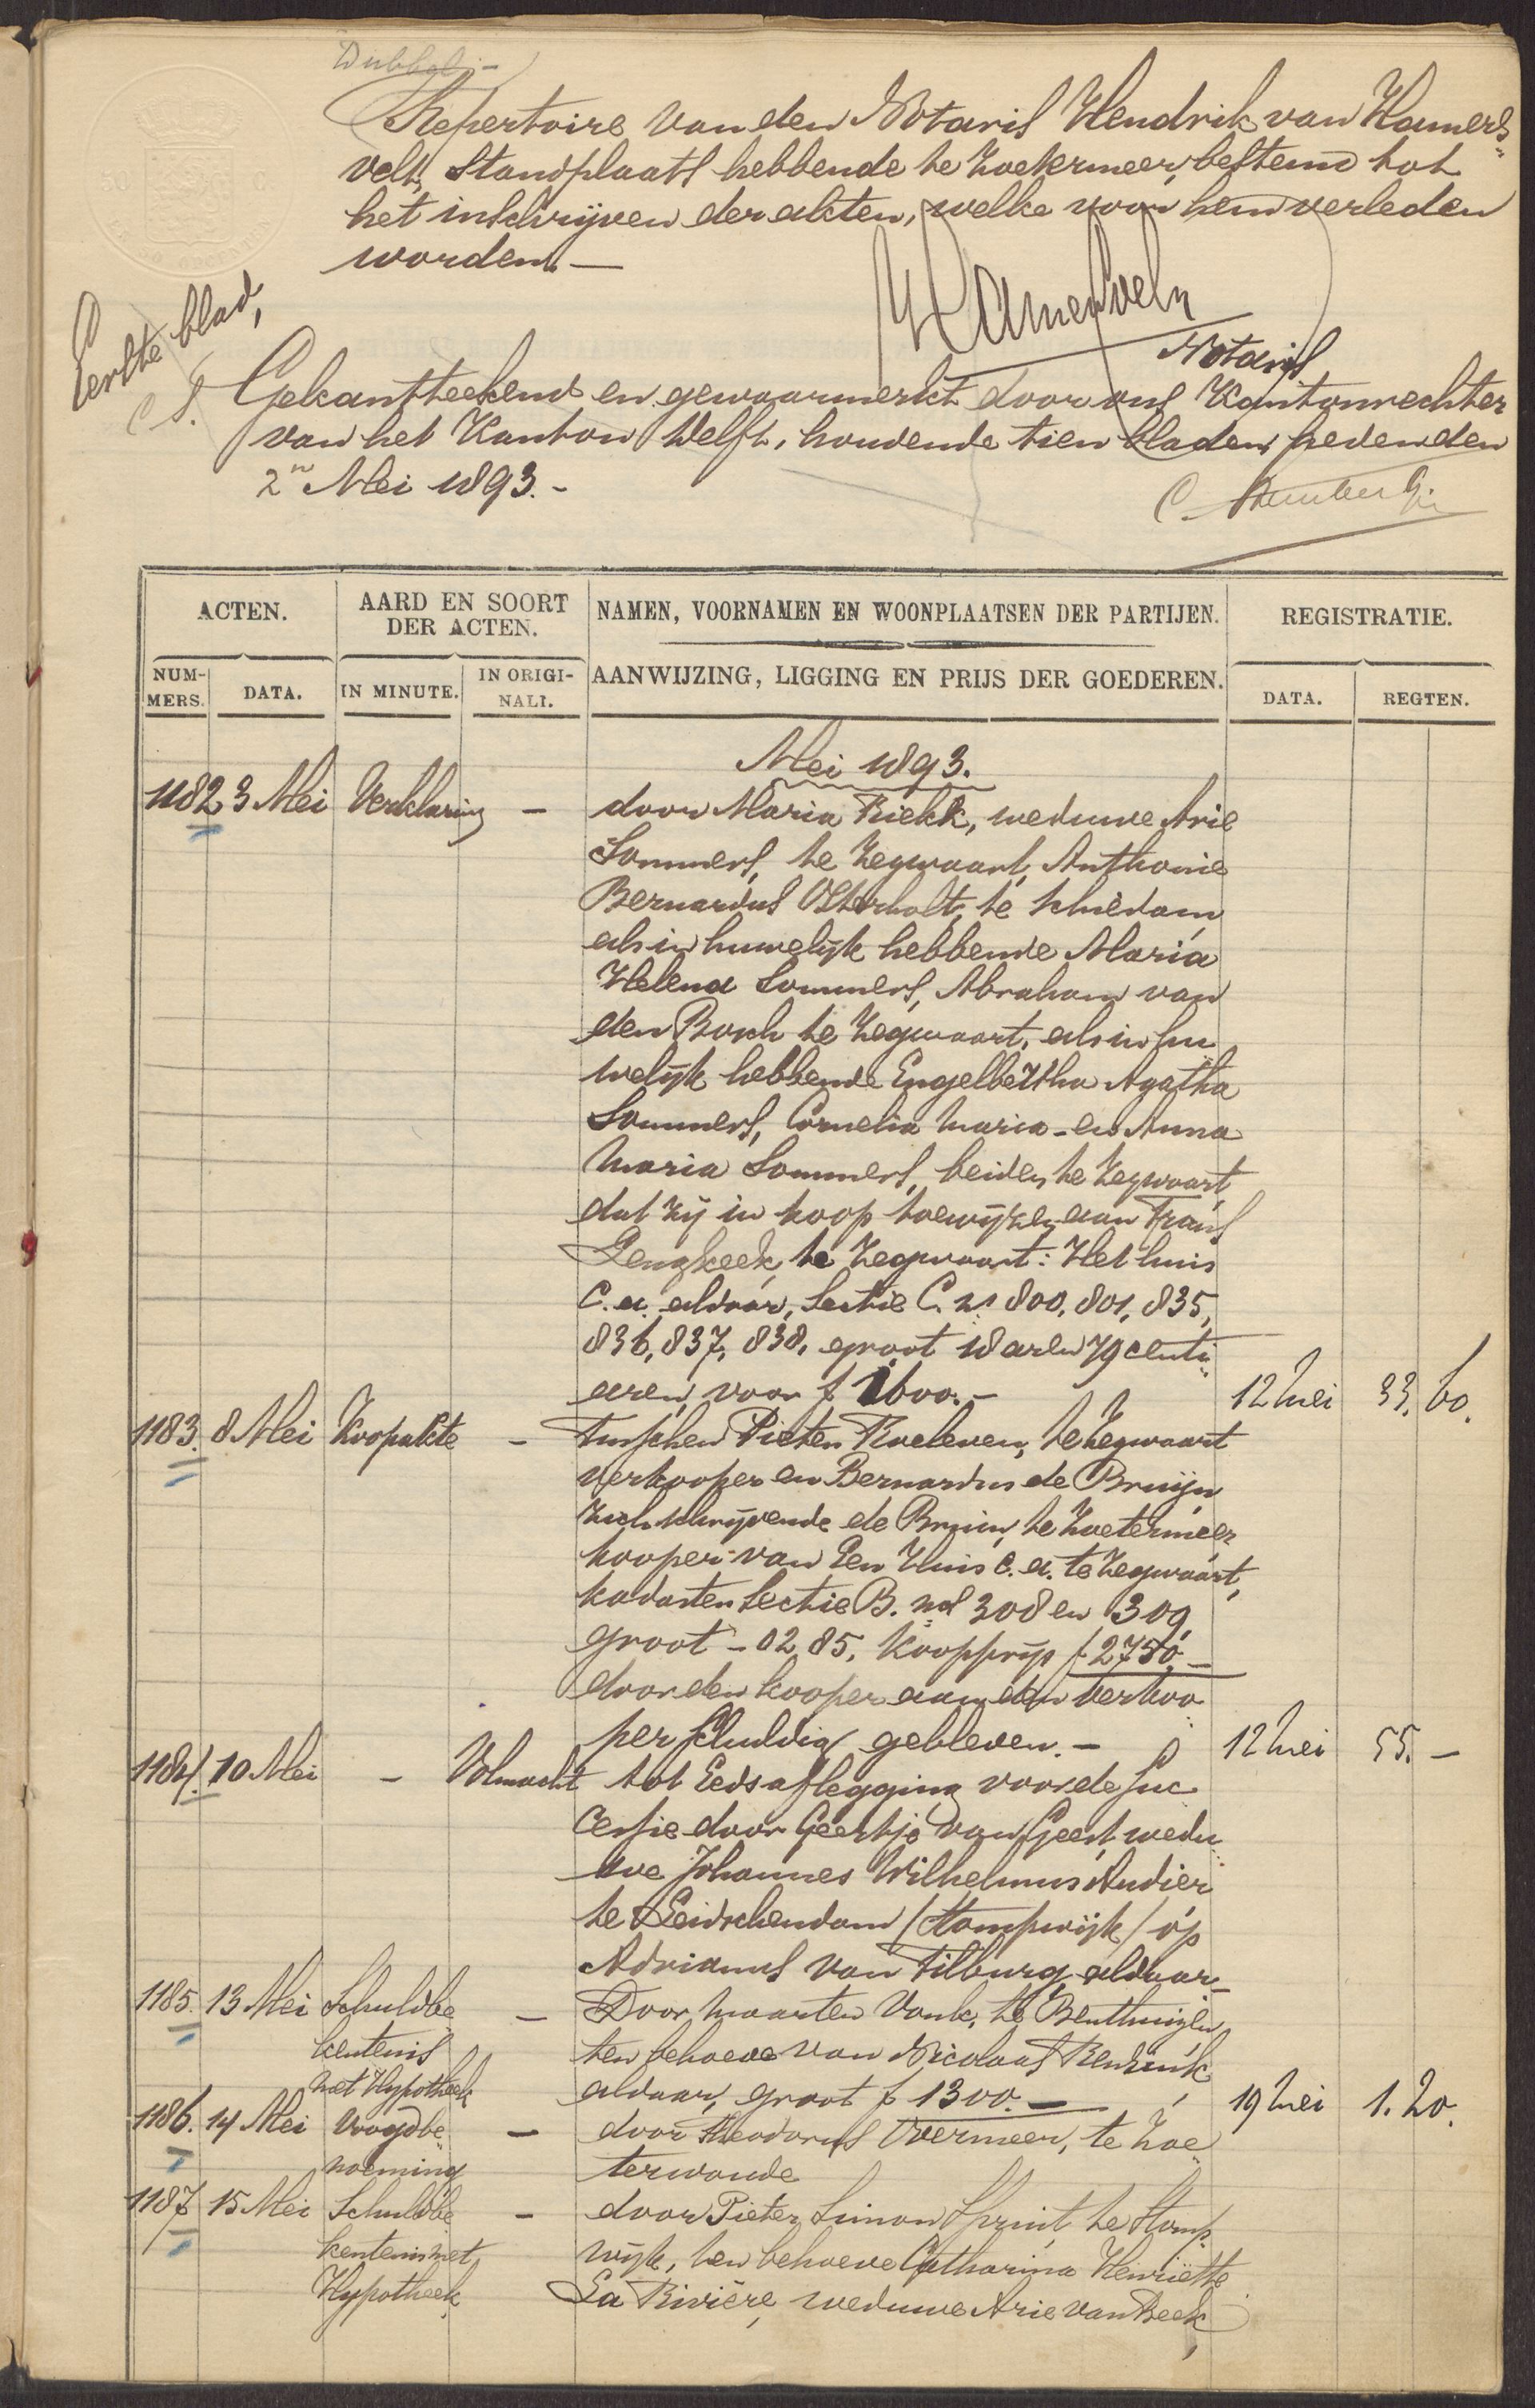 Dubbel.-
Repertoire van den Notaris Hendrik van Hamers„
velt, Standplaats hebbende te Zoetermeer, bestemd tot
het inschrijven der akten, welke voor hem verleden
worden.—
HvHamersvelt
Notaris
Eerste blad,
Gekantteekend en gewaarmerkt door ons Kantonrechter
van het Kanton Delft, houdende tien bladen heden den
2n Mei 1893.-
ACTEN. AARD EN SOORT DER ACTEN. NAMEN, VOORNAMEN EN WOONPLAATSEN DER PARTIJEN. REGISTRATIE.
NUM-MERS. DATA. IN MINUTE. IN ORIGI-NALI. AANWIJZING, LIGGING EN PRIJS DER GOEDEREN. DATA. REGTEN.
Mei 1893.
1182 3 Mei Verklaring - door Maria Riekk, weduwe Arie
Sommers, te Zegwaart, Anthonie
Bernardus Osterholt, te Schiedam
als in huwelijk hebbende Maria
Helena Sommers, Abraham van
den Bosch te Zegwaart, als in hu
welijk hebbende Engelbertha Agatha
Sommers, Cornelia Maria - en Anna
Maria Sommers, beiden te Zegwaart,
dat zij in koop toewijzen aan Frans
Lengkeek, te Zegwaart: Het huis
C. a. aldaar, Sectie C. ns 800, 801, 835,
836, 837, 838, groot 18 aren 79 centi„
aren, voor f 1600.- 12 Mei 33. 60.
1183. 8 Mei Koopakte - tusschen Pieter Roeleven, te Zegwaart
verkooper en Bernardus de Bruijn
zich schrijvende de Bruin, te Zoetermeer
kooper van Een Huis c. a. te Zegwaart,
kadaster Sectie B. nos 308 en 309,
groot - 02 85, Koopprijs f 2750.-
door den kooper aan den verkoo
per schuldig gebleven.- 12 Mei 55. -
1184. 10 Mei - Volmacht tot Eedsaflegging voor de suc
cessie door Geertje van Geest wedu„
uwe Johannes Wilhelmus Audier
te Leidschendam (Stompwijk) op
Adrianus van Tilburg aldaar-
1185. 13 Mei Schuldbe - Door Maarten Vonk, te Benthuizen,
kentenis ten behoeve van Nicolaas
met Hypotheek aldaar, groot f 1300.- 19 Mei 1. 20.
1186. 14 Mei Voogdbe - door Theodorus Overmeer, te Zoe„
noeming terwoude
1187 15 Mei Schuldbe - door Pieter Simon Spruit, te Stomp„
kentenis met wijk, ten behoeve Catharina Henriëtte
Hypotheek La Rivière, weduwe Arie van Beek,